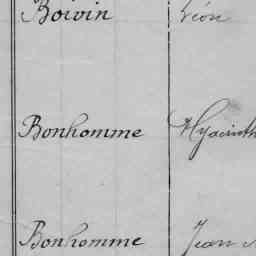 Boivin Léon
Bonhomme Hyacinth
Bonhomme Jean